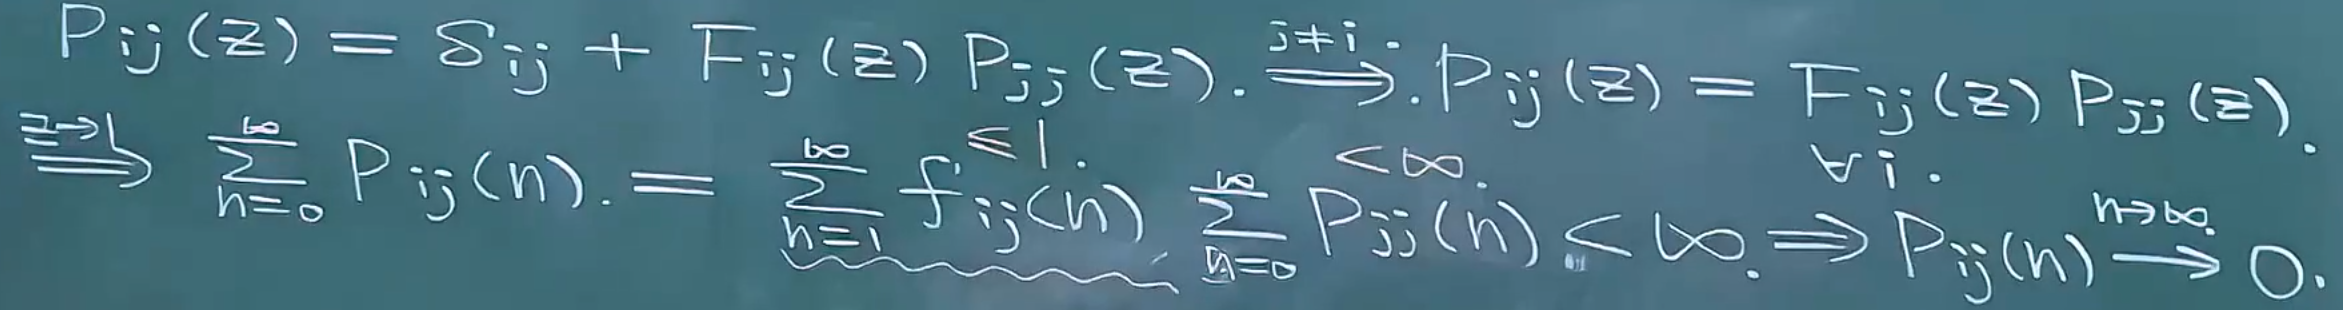 P_{ij}(z) = δ_{ij} + F_{ij}(z) P_{jj}(z). \overset{j≠i.}{⟹}. P_{ij}(z) = F_{ij}(z) P_{jj}(z).
≤ 1. < ∞. ∀i.
\overset{z→1}{⟹} \sum_{n=0}^{∞} P_{ij}(n). = \sum_{n=1}^{∞} f_{ij}(n) \sum_{n=0}^{∞} P_{jj}(n) < ∞. ⟹ P_{ij}(n) \overset{n→∞.}{⟶} 0.